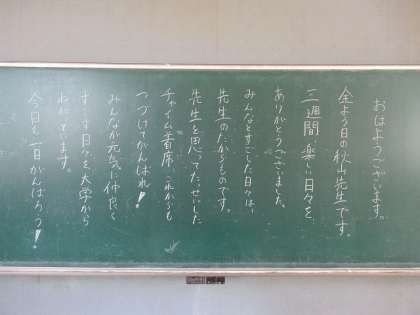 おはようございます。
金よう日の秋山先生です。
三週間、楽しい日々を
ありがとうございました。
みんなとすごした日々は、
先生のたからものです。
先生を思って
チャイム着席 これからも
つづけてがんばれ!
みんなが元気に仲良く
すごす日々を大学から
ねがっています。
今日も一日がんばろう!